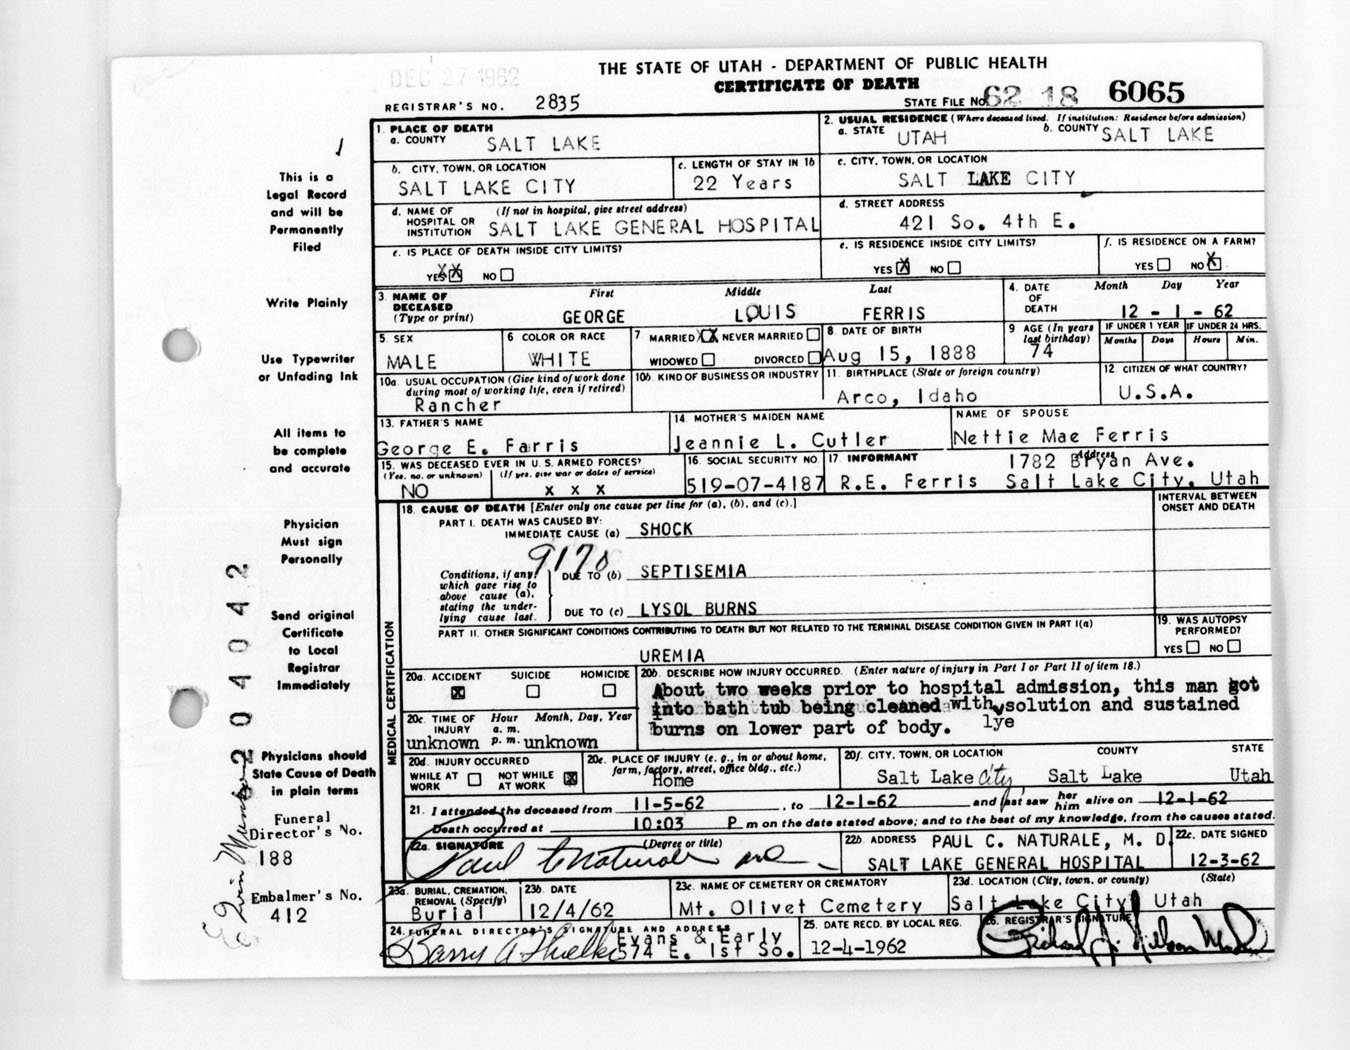 DEC 27 1962
THE STATE OF UTAH - DEPARTMENT OF PUBLIC HEALTH
CERTIFICATE OF DEATH
REGISTRAR'S NO. 2835
STATE FILE No. 62 18 6065
1. PLACE OF DEATH
a. COUNTY SALT LAKE
2. USUAL RESIDENCE (Where deceased lived. If institution: Residence before admission)
a. STATE UTAH b. COUNTY SALT LAKE
b. CITY, TOWN, OR LOCATION
SALT LAKE CITY
c. LENGTH OF STAY IN 1b
22 Years
c. CITY, TOWN, OR LOCATION
SALT LAKE CITY
d. NAME OF HOSPITAL OR INSTITUTION (If not in hospital, give street address)
SALT LAKE GENERAL HOSPITAL
d. STREET ADDRESS
421 So. 4th E.
e. IS PLACE OF DEATH INSIDE CITY LIMITS?
YES XX NO
e. IS RESIDENCE INSIDE CITY LIMITS?
YES X NO
f. IS RESIDENCE ON A FARM?
YES NO X
3. NAME OF DECEASED (Type or print)
First Middle Last
GEORGE LOUIS FERRIS
4. DATE OF DEATH Month Day Year
12 - 1 - 62
5. SEX
MALE
6 COLOR OR RACE
WHITE
7 MARRIED XX NEVER MARRIED
WIDOWED DIVORCED
8. DATE OF BIRTH
Aug 15, 1888
9 AGE (In years last birthday)
74
IF UNDER 1 YEAR IF UNDER 24 HRS.
Months Days Hours Min.
10a. USUAL OCCUPATION (Give kind of work done during most of working life, even if retired)
Rancher
10b. KIND OF BUSINESS OR INDUSTRY
11. BIRTHPLACE (State or foreign country)
Arco, Idaho
12. CITIZEN OF WHAT COUNTRY?
U.S.A.
13. FATHER'S NAME
George E. Farris
14. MOTHER'S MAIDEN NAME
Jeannie L. Cutler
NAME OF SPOUSE
Nettie Mae Ferris
15. WAS DECEASED EVER IN U.S. ARMED FORCES?
(Yes, no, or unknown) (If yes, give war or dates of service)
NO x x x
16. SOCIAL SECURITY NO.
519-07-4187
17. INFORMANT Address
1782 Bryan Ave.
R.E. Ferris Salt Lake City, Utah
18. CAUSE OF DEATH [Enter only one cause per line for (a), (b), and (c).]
INTERVAL BETWEEN ONSET AND DEATH
PART I. DEATH WAS CAUSED BY:
IMMEDIATE CAUSE (a) SHOCK
9170
Conditions, if any, which gave rise to above cause (a), stating the underlying cause last.
DUE TO (b) SEPTISEMIA
DUE TO (c) LYSOL BURNS
PART II. OTHER SIGNIFICANT CONDITIONS CONTRIBUTING TO DEATH BUT NOT RELATED TO THE TERMINAL DISEASE CONDITION GIVEN IN PART I(a)
UREMIA
19. WAS AUTOPSY PERFORMED?
YES NO
MEDICAL CERTIFICATION
20a. ACCIDENT SUICIDE HOMICIDE
X
20b. DESCRIBE HOW INJURY OCCURRED. (Enter nature of injury in Part I or Part II of item 18.)
About two weeks prior to hospital admission, this man got
into bath tub being cleaned with solution and sustained
burns on lower part of body. lye
20c. TIME OF INJURY Hour a.m. p.m. Month, Day, Year
unknown unknown
20d. INJURY OCCURRED
WHILE AT WORK NOT WHILE AT WORK X
20e. PLACE OF INJURY (e. g., in or about home, farm, factory, street, office bldg., etc.)
Home
20f. CITY, TOWN, OR LOCATION COUNTY STATE
Salt Lake City Salt Lake Utah
21. I attended the deceased from 11-5-62, to 12-1-62 and last saw her him alive on 12-1-62
Death occurred at 10:03 P m on the date stated above; and to the best of my knowledge, from the causes stated.
22a. SIGNATURE (Degree or title)
Paul C Naturale MD
22b. ADDRESS PAUL C. NATURALE, M. D.
SALT LAKE GENERAL HOSPITAL
22c. DATE SIGNED
12-3-62
23a. BURIAL, CREMATION, REMOVAL (Specify)
Burial
23b. DATE
12/4/62
23c. NAME OF CEMETERY OR CREMATORY
Mt. Olivet Cemetery
23d. LOCATION (City, town, or county) (State)
Salt Lake City Utah
24. FUNERAL DIRECTOR'S SIGNATURE AND ADDRESS
Evans & Early
574 E. 1st So.
25. DATE RECD. BY LOCAL REG.
12-4-1962
26. REGISTRAR'S SIGNATURE
This is a
Legal Record
and will be
Permanently
Filed
Write Plainly
Use Typewriter
or Unfading Ink
All items to
be complete
and accurate
Physician
Must sign
Personally
Send original
Certificate
to Local
Registrar
Immediately
Physicians should
State Cause of Death
in plain terms
Funeral
Director's No.
188
Embalmer's No.
412
204042